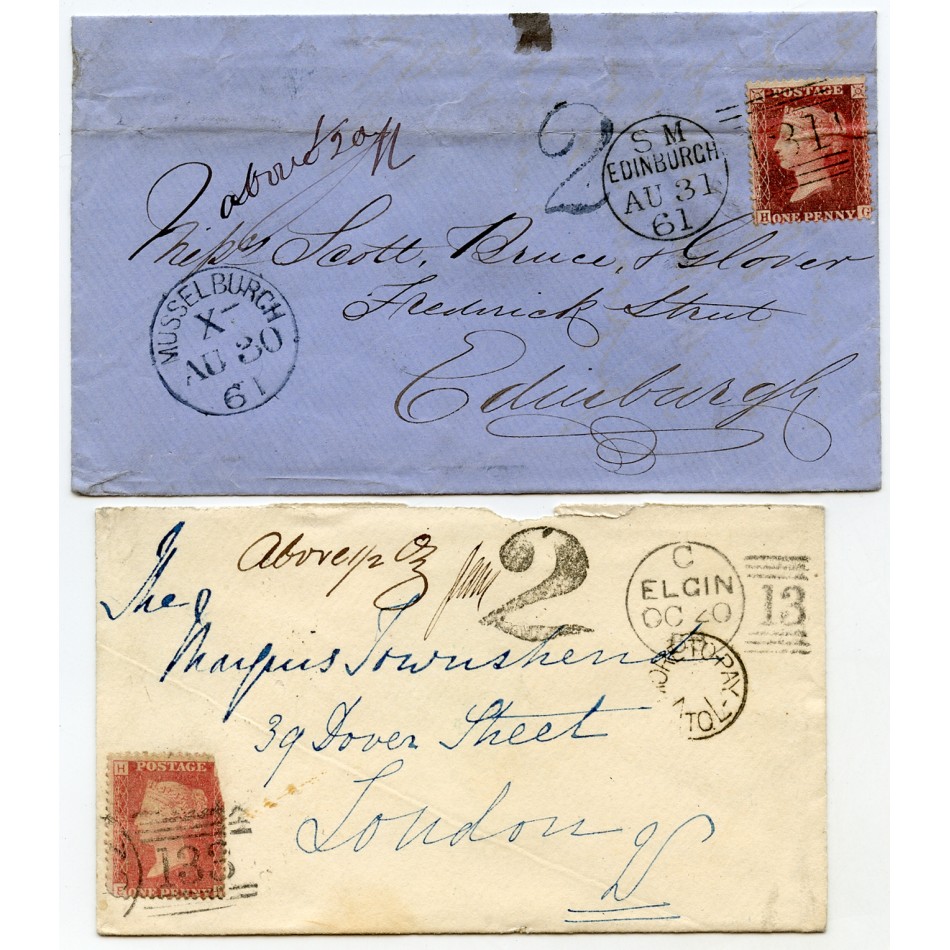 POSTAGE
H ONE PENNY G
above ½ oz
2
S M
EDINBURGH
AU 31
61
131
Messrs Scott, Bruce, & Glover
Frederick Street
Edinburgh
MUSSELBURGH
X
AU 30
61
Above ½ Oz
2
C
ELGIN
OC 20
133
MORE TO PAY
The
Marquis Townshend
39 Dover Street
London
W
H POSTAGE
ONE PENNY
133